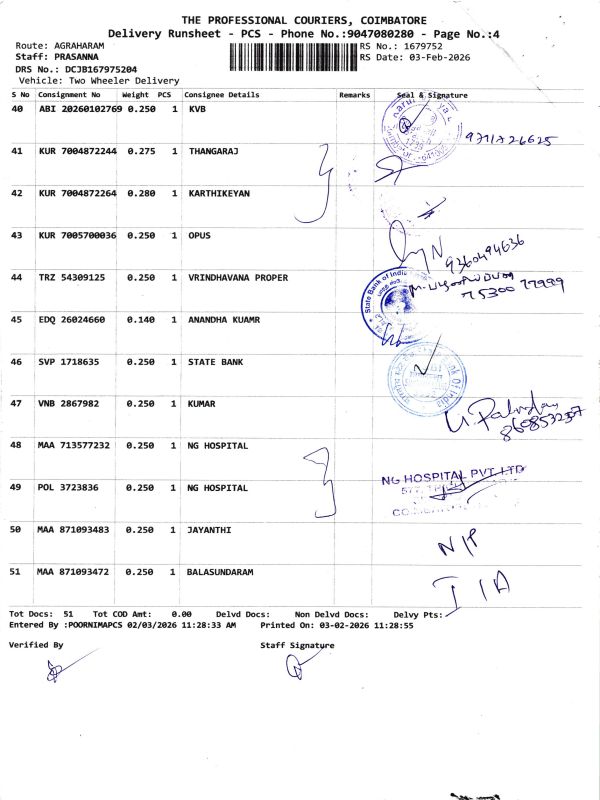 THE PROFESSIONAL COURIERS, COIMBATORE
Delivery Runsheet - PCS - Phone No.:9047080280 - Page No.:4
Route: AGRAHARAM RS No.: 1679752
Staff: PRASANNA RS Date: 03-Feb-2026
DRS No.: DCJB167975204
Vehicle: Two Wheeler Delivery
S No Consignment No Weight PCS Consignee Details Remarks Seal & Signature
40 ABI 20260102769 0.250 1 KVB
41 KUR 7004872244 0.275 1 THANGARAJ
42 KUR 7004872264 0.280 1 KARTHIKEYAN
43 KUR 7005700036 0.250 1 OPUS 9360494636
44 TRZ 54309125 0.250 1 VRINDHAVANA PROPER 75300 77999
State Bank of India
45 EDQ 26024660 0.140 1 ANANDHA KUAMR
46 SVP 1718635 0.250 1 STATE BANK
47 VNB 2867982 0.250 1 KUMAR
48 MAA 713577232 0.250 1 NG HOSPITAL
NG HOSPITAL PVT LTD
49 POL 3723836 0.250 1 NG HOSPITAL
50 MAA 871093483 0.250 1 JAYANTHI
51 MAA 871093472 0.250 1 BALASUNDARAM
Tot Docs: 51 Tot COD Amt: 0.00 Delvd Docs: Non Delvd Docs: Delvy Pts:
Entered By :POORNIMAPCS 02/03/2026 11:28:33 AM Printed On: 03-02-2026 11:28:55
Verified By Staff Signature